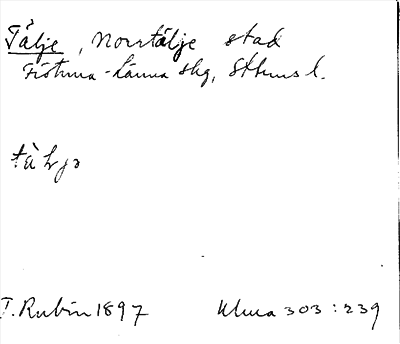 Tälje, Norrtälje stad
Frötuna-Länna skg, Sthms l.
tàlja
T. Rubin 1897 Ulma 303:239